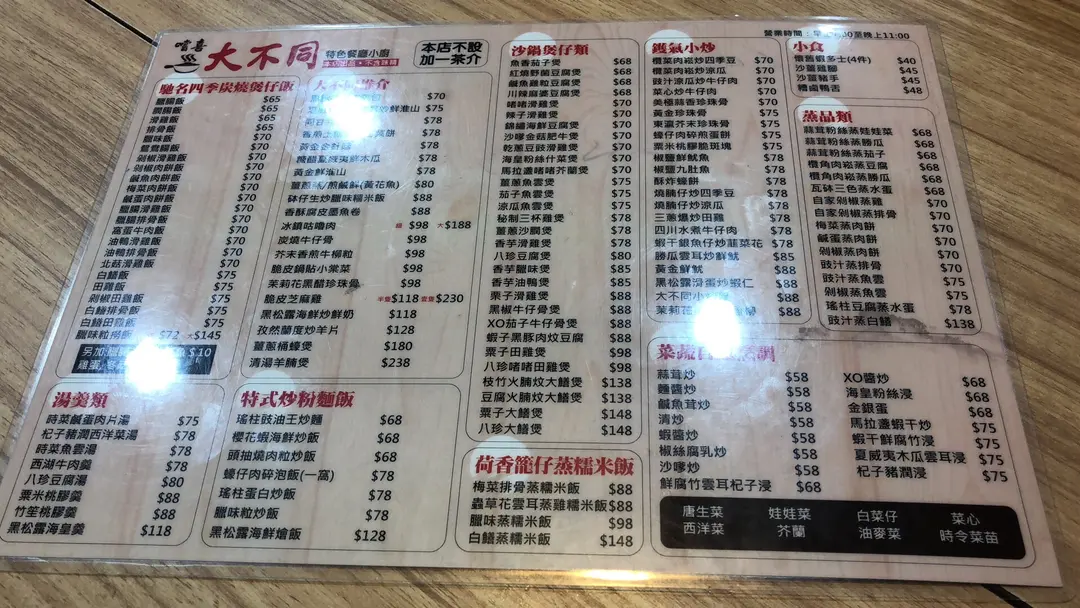 嚐喜
大不同
特色餐廳小廚
本店出品・不含味精
本店不設
加一茶介
馳名四季炭燒煲仔飯
臘腸飯 $65
膶腸飯 $65
滑雞飯 $65
排骨飯 $65
臘味飯 $70
鴛鴦腸飯 $70
剁椒滑雞飯 $70
剁椒肉餅飯 $70
鹹魚肉餅飯 $70
梅菜肉餅飯 $70
鹹蛋肉餅飯 $70
臘腸滑雞飯 $70
臘腸排骨飯 $70
窩蛋牛肉飯 $70
油鴨滑雞飯 $70
油鴨排骨飯 $70
北菇滑雞飯 $70
白鱔飯 $75
田雞飯 $75
剁椒田雞飯 $75
白鱔排骨飯 $75
白鱔田雞飯 $75
臘味粒撈飯 $72 大$145
另加:臘 $10
雞蛋
湯羹類
時菜鹹蛋肉片湯 $75
杞子豬潤西洋菜湯 $78
時菜魚雲湯 $78
西湖牛肉羹 $78
八珍豆腐湯 $80
粟米桃膠羹 $88
竹笙桃膠羹 $88
黑松露海皇羹 $118
大不同推介
$70
鮮淮山 $75
$78
香煎土 餅 $78
黃金金針菇 $78
機醋夏威夷鮮木瓜 $78
黃金鮮淮山 $78
薑蔥焗/煎鹹鮮(黃花魚) $80
砵仔生炒臘味糯米飯 $88
香酥腐皮墨魚卷 $88
冰鎮咕嚕肉 細 $98 大$188
炭燒牛仔骨 $98
芥末香煎牛柳粒 $98
脆皮鍋貼小棠菜 $98
茉莉花黑醋珍珠骨 $98
脆皮芝麻雞 半隻$118 壹隻$230
黑松露海鮮炒鮮奶 $118
孜然蘭度炒羊片 $128
薑蔥桶蠔 $180
清湯羊腩煲 $238
特式炒粉麵飯
瑤柱豉油王炒麵 $68
櫻花蝦海鮮炒飯 $68
頭抽燒肉粒炒飯 $68
蠔仔肉碎泡飯(一窩) $78
瑤柱蛋白炒飯 $78
臘味粒炒飯 $78
黑松露海鮮燴飯 $128
沙鍋煲仔類
魚香茄子煲 $68
紅燒野菌豆腐煲 $68
鹹魚雞粒豆腐煲 $68
川辣麻婆豆腐煲 $68
啫啫滑雞煲 $70
辣子滑雞煲 $70
錦繡海鮮豆腐煲 $70
沙嗲金菇肥牛煲 $70
乾蔥豆豉滑雞煲 $70
海皇粉絲什菜煲 $70
馬拉盞啫啫芥蘭煲 $70
薑蔥魚雲煲 $75
茄子魚雲煲 $75
涼瓜魚雲煲 $75
秘制三杯雞煲 $78
薑蔥沙膶煲 $78
香芋滑雞煲 $78
八珍豆腐煲 $80
香芋臘味煲 $85
香芋油鴨煲 $85
栗子滑雞煲 $88
黑椒牛仔骨煲 $88
XO茄子牛仔骨煲 $88
蝦子黑豚肉炆豆腐 $88
栗子田雞煲 $98
八珍啫啫田雞煲 $98
枝竹火腩炆大鱔煲 $138
豆腐火腩炆大鱔煲 $138
栗子大鱔煲 $148
八珍大鱔煲 $148
荷香籠仔蒸糯米飯
梅菜排骨蒸糯米飯 $88
蟲草花雲耳蒸雞糯米飯 $88
臘味蒸糯米飯 $98
白鱔蒸糯米飯 $148
鑊氣小炒
欖菜肉崧炒四季豆 $70
欖菜肉崧炒涼瓜 $70
豉汁涼瓜炒牛仔肉 $70
菜心炒牛仔肉 $70
美極蒜香珍珠骨 $70
黃金珍珠骨 $75
東瀛芥末珍珠骨 $75
蠔仔肉碎煎蛋餅 $75
粟米桃膠脆斑塊 $75
椒鹽鮮魷魚 $78
椒鹽九肚魚 $78
酥炸蠔餅 $78
燒腩仔炒四季豆 $78
燒腩仔炒涼瓜 $78
三蔥爆炒田雞 $78
四川水煮牛仔肉 $78
蝦干銀魚仔炒韮菜花 $78
勝瓜雲耳炒鮮魷 $85
黃金鮮魷 $88
黑松露滑蛋炒蝦仁 $88
大不同小炒 $88
茉莉花 $88
小食
懷舊蝦多士(4件) $40
沙薑雞腳 $45
沙薑豬手 $45
糟鹵鴨舌 $48
蒸品類
蒜茸粉絲蒸娃娃菜 $68
蒜茸粉絲蒸勝瓜 $68
蒜茸粉絲蒸茄子 $68
欖角肉崧蒸豆腐 $68
欖角肉崧蒸勝瓜 $68
瓦砵三色蒸水蛋 $68
自家剁椒蒸雞 $70
自家剁椒蒸排骨 $70
梅菜蒸肉餅 $70
鹹蛋蒸肉餅 $70
剁椒蒸肉餅 $70
豉汁蒸排骨 $70
豉汁蒸魚雲 $75
剁椒蒸魚雲 $75
瑤柱豆腐蒸水蛋 $78
豉汁蒸白鱔 $138
蒜茸炒 $58
麵醬炒 $58
鹹魚茸炒 $58
清炒 $58
蝦醬炒 $58
椒絲腐乳炒 $58
沙嗲炒 $58
鮮腐竹雲耳杞子浸 $68
XO醬炒 $68
海皇粉絲浸 $68
金銀蛋 $68
馬拉盞蝦干炒 $75
蝦干鮮腐竹浸 $75
夏威夷木瓜雲耳浸 $75
杞子豬潤浸 $75
唐生菜 娃娃菜 白菜仔 菜心
西洋菜 芥蘭 油麥菜 時令菜苗